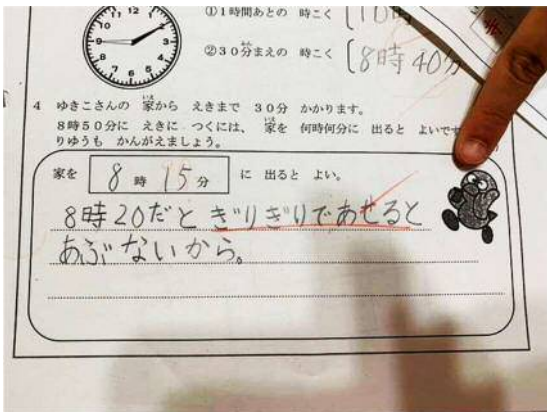 12
11
1
10
2
9
3
8
4
7
5
6
①1時間あとの 時こく
②30分まえの 時こく
ぷん
8時40分
4 ゆきこさんの 家から えきまで 30分 かかります。
いえ
8時50分に えきに つくには、 家を 何時何分に 出ると よいです
いえ
りゆうも かんがえましょう。
家を 8 時 15 分 に 出ると よい。
8時20だとぎりぎりであせると
あぶないから。